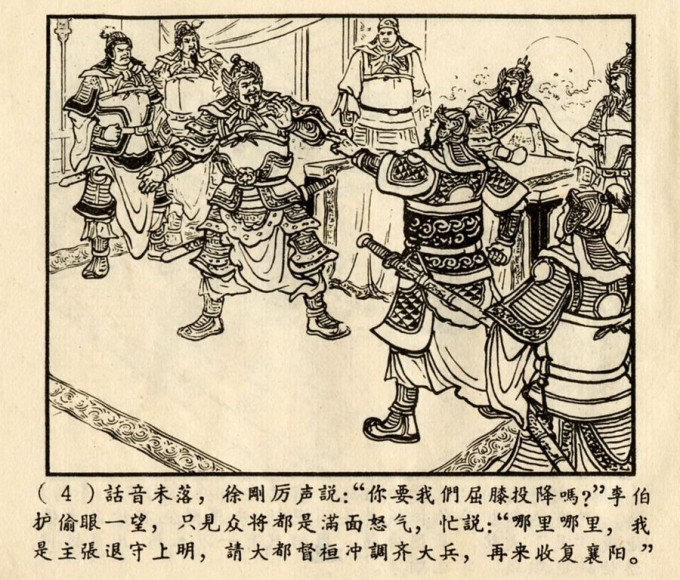 (4)話音未落，徐剛厉声説：“你要我們屈膝投降嗎？”李伯
护偷眼一望，只見众将都是滿面怒气，忙説：“哪里哪里，我
是主張退守上明，請大都督桓冲調齐大兵，再来收复襄阳。”